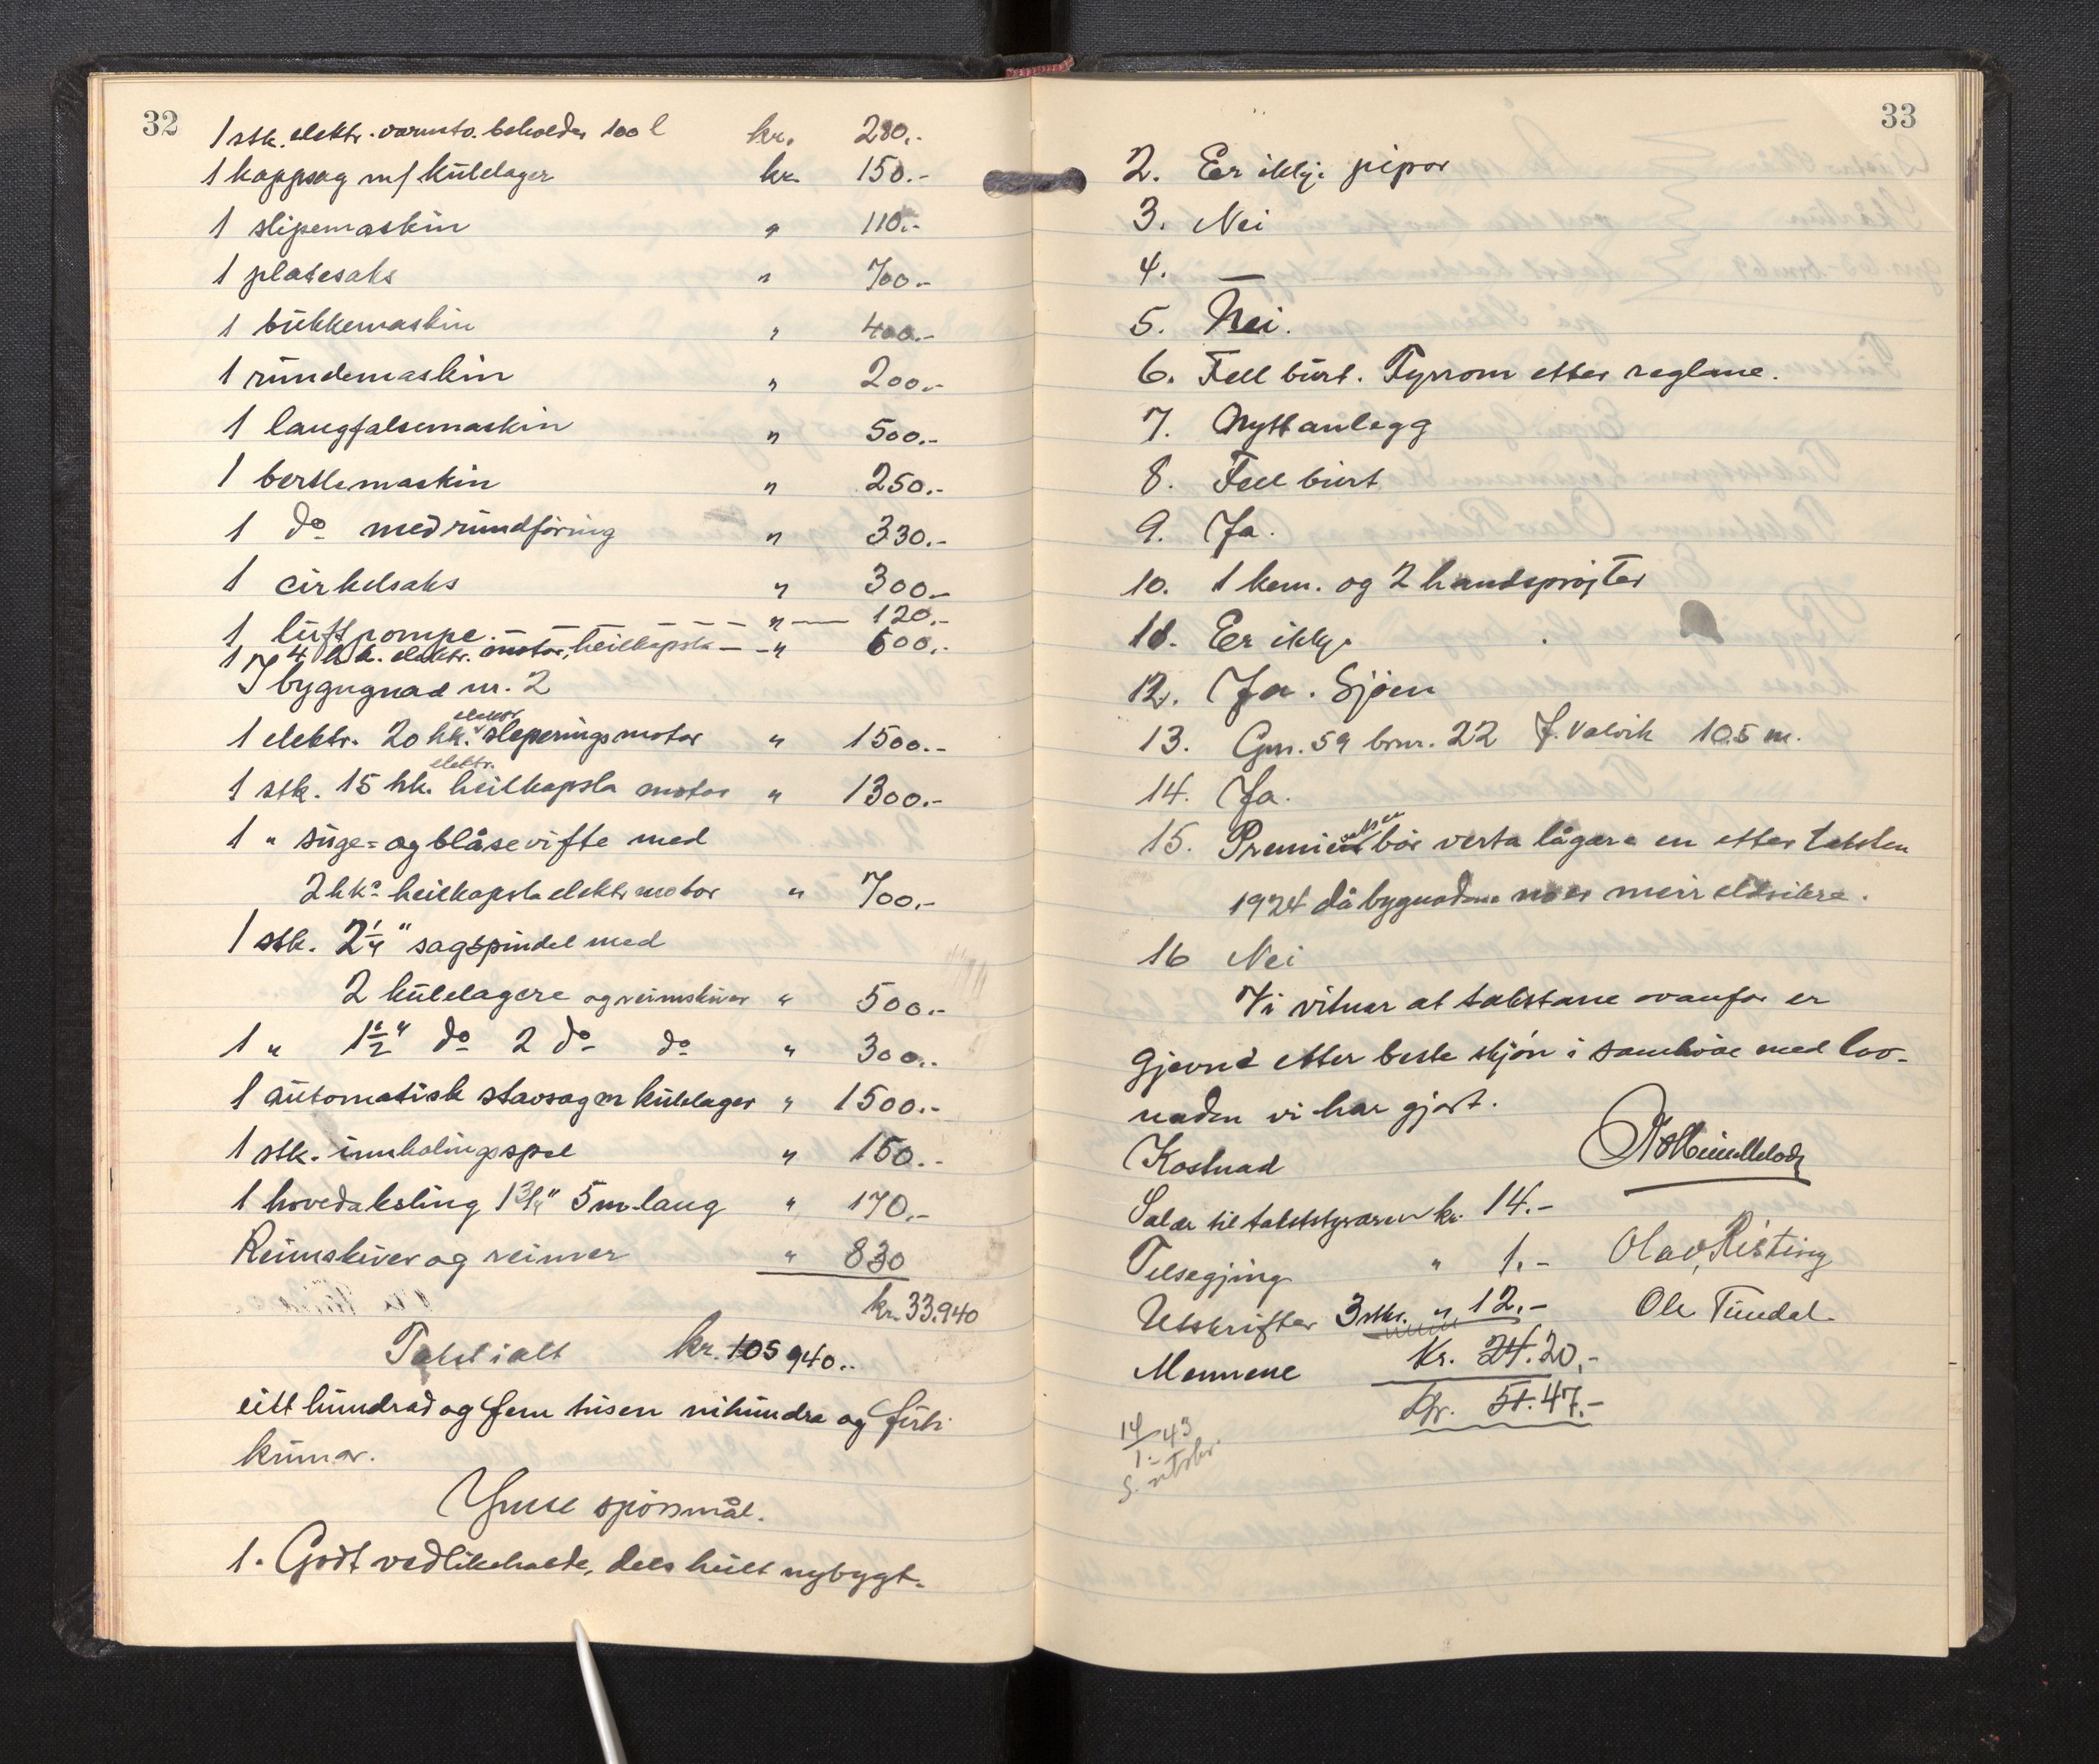 32
1 stk. elektr. varmtv. beholder 100 l kr. 280.-
1 kappsag m/ kulelager kr. 150.-
1 slipemaskin " 110.-
1 platesaks " 700.-
1 bukkemaskin " 400.-
1 rundemaskin " 200.-
1 langfalsemaskin " 500.-
1 bertlemaskin " 250.-
1 do med rundföring " 330.-
1 cirkelsaks " 300.-
1 luftpompe. — — — — — " — 120.-
1 4 hk. elektr. motor, heilkapsla — " 600.-
I bygugnad nr. 2
1 elektr. 20 hk. sleperingsmotor " 1500.-
elektr.
1 stk. 15 hk. heilkapsla motor " 1300.-
1 " suge- og blåsevifte med
2 hk heilkapsla elektr motor " 700.-
1 stk. 2¼" sagspindel med
2 kulelagere og reimskiver " 500.-
1 " 1½" do 2 do do " 300.-
1 automatisk stavsag m kulelager " 1500.-
1 stk. innhalingsspel " 150.-
1 hovedaksling 1¾" 5 m lang " 170.-
Reimskiver og reimer " 830
kr. 33.940
Takst ialt kr. 105 940..
eitt hundrad og fem tusen nihundra og fürti
krunor.
Ymse spörsmål.
1. Godt vedlikehalde, dels heilt nybygt.
33
2. Er ikkje pipor
3. Nei
4. —
5. Nei.
6. Fell burt. Fyrrom etter reglane.
7. Nytt anlegg
8. Fell burt
9. Ja.
10. 1 kem. og 2 handsprøjter
11. Er ikkje
12. Ja. Sjöen
13. Gnr. 59 brnr. 22 J. Valvik 10.5 m.
14. Ja.
15. Premien bör verta lågare en etter taksten
1924 då bygnadene no er meir eldsikre.
16 Nei
Vi vitnar at takstane ovanfor er
gjevne etter beste skjön i samhöve med lov-
naden vi har gjort.
Kostnad
Salær til takststyraren kr. 14.-
Tilsegjing " 1.- Olav Risting
Utskrifter 3 stk. " 12.- Ole Tundal
Mennene kr. 24. 20.-
Kr. 51. 47.-
14/1-43